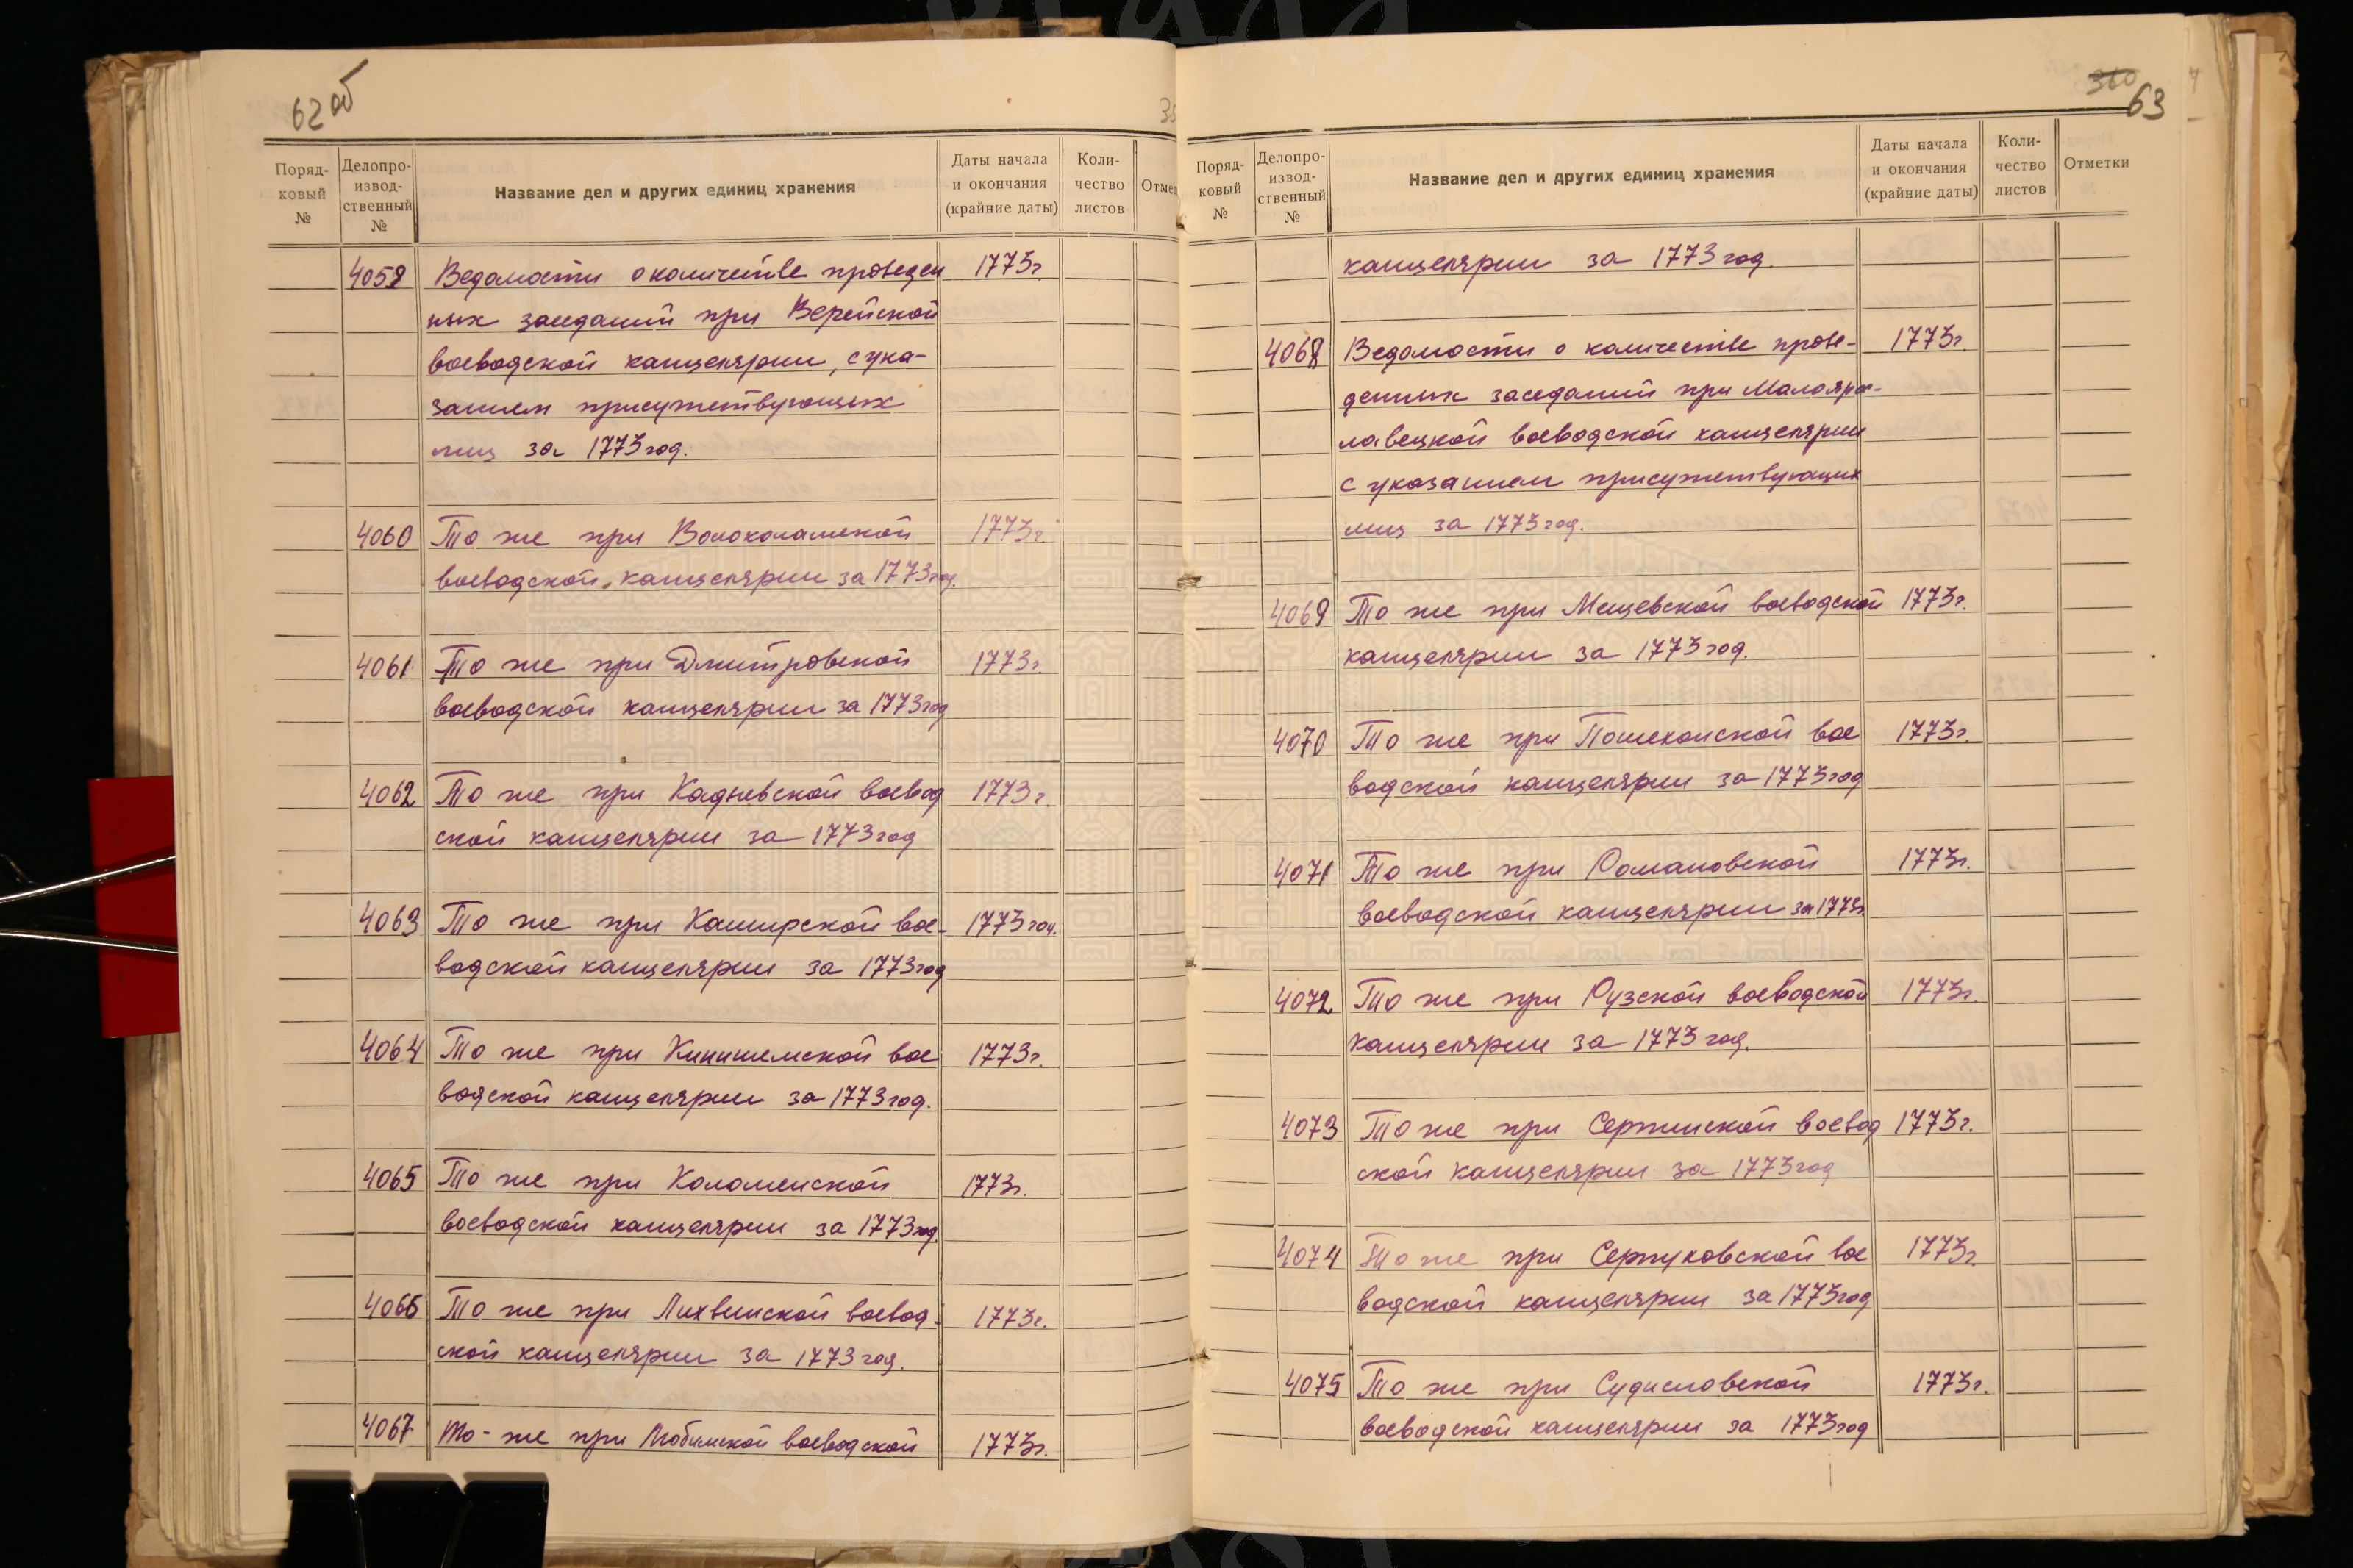 62 об
Поряд-
ковый
№
Делопро-
извод-
ственный
№
Название дел и других единиц хранения
Даты начала
и окончания
(крайние даты)
Коли-
чество
листов
Отмет
4059 Ведомости о количестве проведен 1773г
ных заседаний при Верейской
воеводской канцелярии, с ука-
занием присутствующих
лиц за 1773 год.
4060 То же при Волоколамской 1773г.
воеводской канцелярии за 1773 год.
4061 То же при Дмитровской 1773г.
воеводской канцелярии за 1773 год
4062 То же при Кадуевской воевод 1773г.
ской канцелярии за 1773 год
4063 То же при Каширской вое- 1773 год.
водской канцелярии за 1773 год
4064 То же при Кинишемской вое 1773г.
водской канцелярии за 1773 год.
4065 То же при Коломенской 1773г.
воеводской канцелярии за 1773 год.
4066 То же при Лихвинской воевод- 1773г.
ской канцелярии за 1773 год.
4067 То-же при Любимской воеводской 1773г.
360
63
Поряд-
ковый
№
Делопро-
извод-
ственный
№
Название дел и других единиц хранения
Даты начала
и окончания
(крайние даты)
Коли-
чество
листов
Отметки
канцелярии за 1773 год.
4068 Ведомости о количестве прове- 1773г.
денных заседаний при Малояро-
славецкой воеводской канцелярии
с указанием присутствующих
лиц за 1773 год.
4069 То же при Мещевской воеводской 1773г.
канцелярии за 1773 год.
4070 То же при Пошехонской вое 1773г.
водской канцелярии за 1773 год
4071 То же при Романовской 1773г.
воеводской канцелярии за 1773г.
4072 То же при Рузской воеводской 1773г.
канцелярии за 1773 год.
4073 То же при Серпинской воевод 1773г.
ской канцелярии за 1773 год
4074 То же при Серпуховской вое 1773г.
водской канцелярии за 1773 год
4075 То же при Судисловской 1773г.
воеводской канцелярии за 1773 год